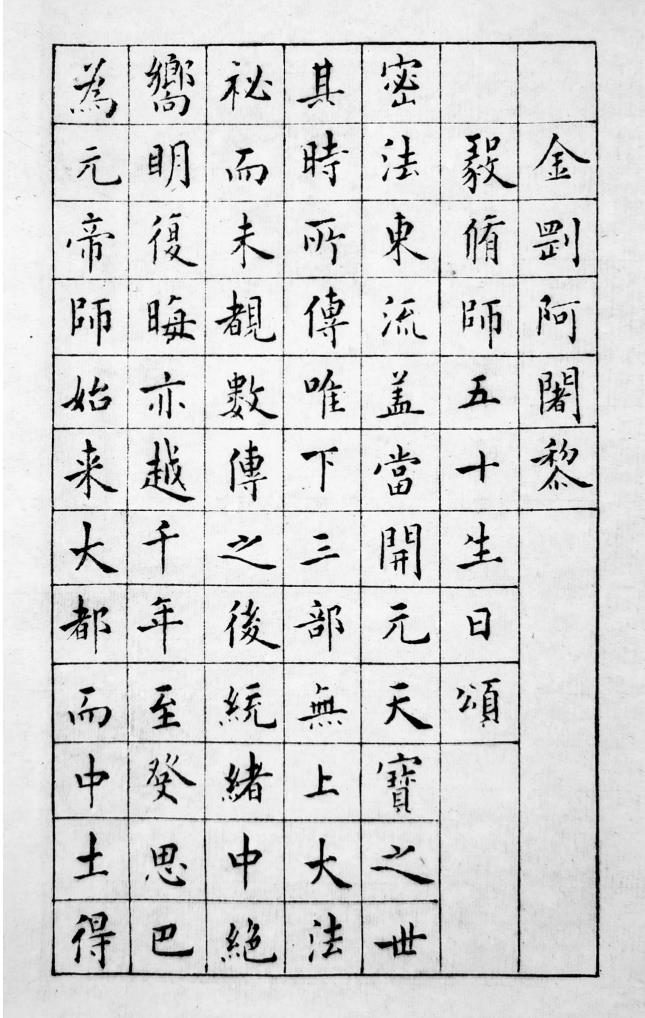 金剛阿闍黎
毅脩師五十生日頌
密法東流盖當開元天寶之世
其時所傳唯下三部無上大法
祕而未覩數傳之後統緒中絕
嚮明復晦亦越千年至癹思巴
為元帝師始来大都而中土得